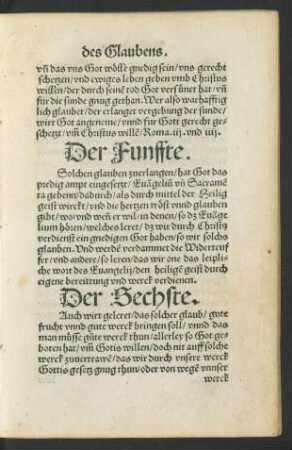 des Glaubens.
vñ das vns Got wölle gnedig sein/ vns gerecht
schetzen/ vnd ewiges leben geben vmb Christus
willen/ der durch seinẽ tod Got versünet hat/ vñ
für die sunde gnug gethan. Wer also warhafftig
lich glaubet/ der erlanget vergebung der sunde/
wirt Got angeneme/ vnnd für Gott gerecht ge-
schetzt/ vm̃ Christus wille/ Roma. iij. vnd iiij.
Der Funffte.
Solchen glauben zuerlangen/ hat Got das
predig ampt eingesetzt/ Euãgeliũ vñ Sacramẽ
ta gebenn/ dadurch/ als durch mittel der Heilig
geist wirckt/ vnd die hertzen tröst vnnd glauben
gibt/ wo/ vnd weñ er wil/ in denen/ so dz Euãge
lium hören/ welches leret/ dz wir durch Christ9
verdienst ein gnedigen Got haben/ so wir solchs
glaubẽ. Vnd werdẽ verdammet die Widerteuf
fer/ vnd andere/ so leren/ das wir one das leipli-
che wort des Euangelij/ den heiligẽ geist durch
eigene bereittung vnd werck verdienen.
Der Sechste.
Auch wirt geleret/ das solcher glaub/ gute
frucht vnnd gute werck bringen soll/ vnnd das
man müsse gute werck thun/ allerley so Got ge-
boten hat/ vm̃ Gottis willen/ doch nit auff solche
werck zuuertrawẽ/ das wir durch vnsere werck
Gottis gesetz gnug thun/ oder von wegẽ vnnser
werck